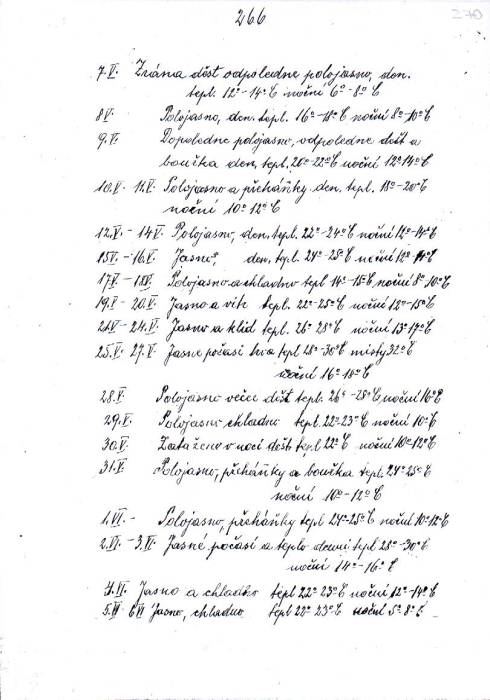 266
270
7.V. Zrána déšť odpoledne polojasno, den.
tepl. 12°-14°C noční 6°-8°C
8V. Polojasno, den. tepl. 16°-18°C noční 8°-10°C
9.V. Dopoledne polojasno, odpoledne déšť a
bouřka den. tepl. 20°-22°C noční 12°14°C
10.V. 11.V. Polojasno a přeháňky den. tepl. 18°-20°C
noční 10°12°C
12.V. - 14V. Polojasno, den. tepl. 22°-24°C noční 12°-14°C
15V. - 16.V. Jasno, den. tepl. 24°-25°C noční 12°-14°C
17V. - 18V. Polojasno a chladno tepl 14°-15°C noční 8° 10°C
19.V - 20.V. Jasno a vítr tepl. 22°-25°C noční 12°-15°C
21.V - 24.V. Jasno a klid tepl. 26° 28°C noční 13°17°C
25.V. 27.V. Jasné počasí trvá tepl 28°-30°C místy 32°C
noční 16°18°C
28.V. Polojasno večer déšť tepl. 26° -28°C noční 16°C
29.V. Polojasno chladno tepl. 22°23°C noční 10°C
30.V. Zataženo v noci déšť tepl 22°C noční 10°12°C
31.V. Polojasno, přeháňky a bouřka tepl. 24°25°C
noční 10°-12°C
1.VI. - Polojasno, přeháňky tepl 24°-25°C noční 10°12°C
2.VI. - 3.VI. Jasné počasí a teplo denní tepl 28°-30°C
noční 14°-16°C
4.VI. Jasno a chladno tepl 22°23°C noční 12°-14°C
5.VI 6VI Jasno, chladno tepl 22° 23°C noční 5° 8°C